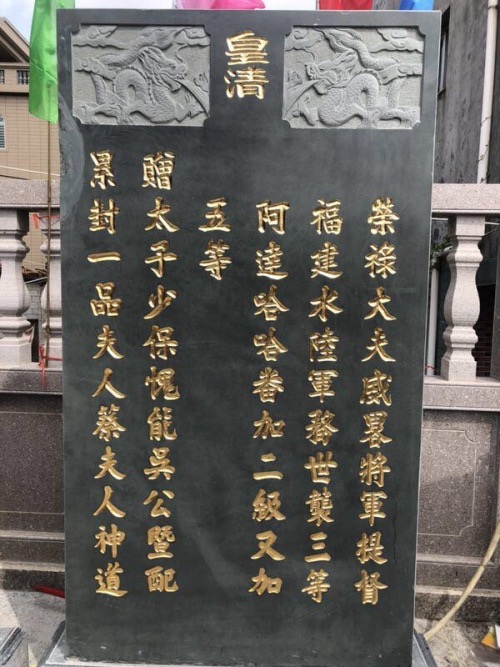 皇清
榮祿大夫威畧將軍提督
福建水陸軍務世襲三等
阿達哈哈番加二級又加
五等
贈太子少保愧能吳公暨配
累封一品夫人蔡夫人神道